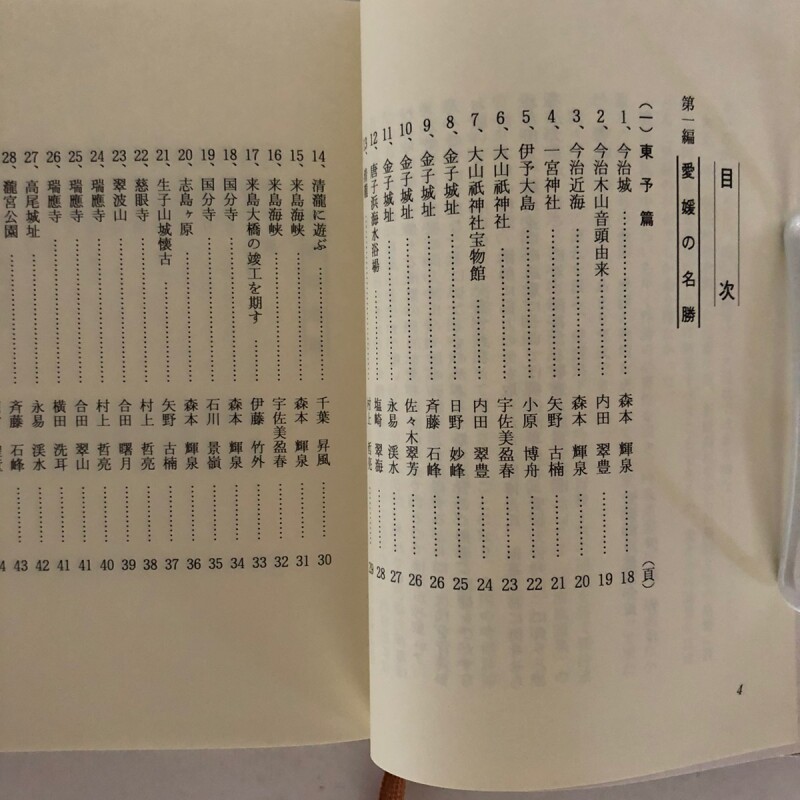 目次
第一編 愛媛の名勝
(一) 東予篇 (頁)
1、今治城 …… 森本 輝泉 …… 18
2、今治木山音頭由来 …… 内田 翠豊 …… 19
3、今治近海 …… 森本 輝泉 …… 20
4、一宮神社 …… 矢野 古楠 …… 21
5、伊予大島 …… 小原 博舟 …… 22
6、大山祇神社 …… 宇佐美盈春 …… 23
7、大山祇神社宝物館 …… 内田 翠豊 …… 24
8、金子城址 …… 日野 妙峰 …… 25
9、金子城址 …… 斉藤 石峰 …… 26
10、金子城址 …… 佐々木翠芳 …… 26
11、金子城址 …… 永易 渓水 …… 27
12、唐子浜海水浴場 …… 塩崎 翠海 …… 28
4
14、清瀧に遊ぶ …… 千葉 昇風 …… 30
15、来島海峡 …… 森本 輝泉 …… 31
16、来島海峡 …… 宇佐美盈春 …… 32
17、来島大橋の竣工を期す …… 伊藤 竹外 …… 33
18、国分寺 …… 森本 輝泉 …… 34
19、国分寺 …… 石川 景嶺 …… 35
20、志島ヶ原 …… 森本 輝泉 …… 36
21、生子山城懐古 …… 矢野 古楠 …… 37
22、慈眼寺 …… 村上 哲亮 …… 38
23、翠波山 …… 合田 曙月 …… 39
24、瑞應寺 …… 村上 哲亮 …… 40
25、瑞應寺 …… 合田 翠山 …… 41
26、瑞應寺 …… 横田 洗耳 …… 41
27、高尾城址 …… 永易 渓水 …… 42
28、瀧宮公園 …… 斉藤 石峰 …… 43